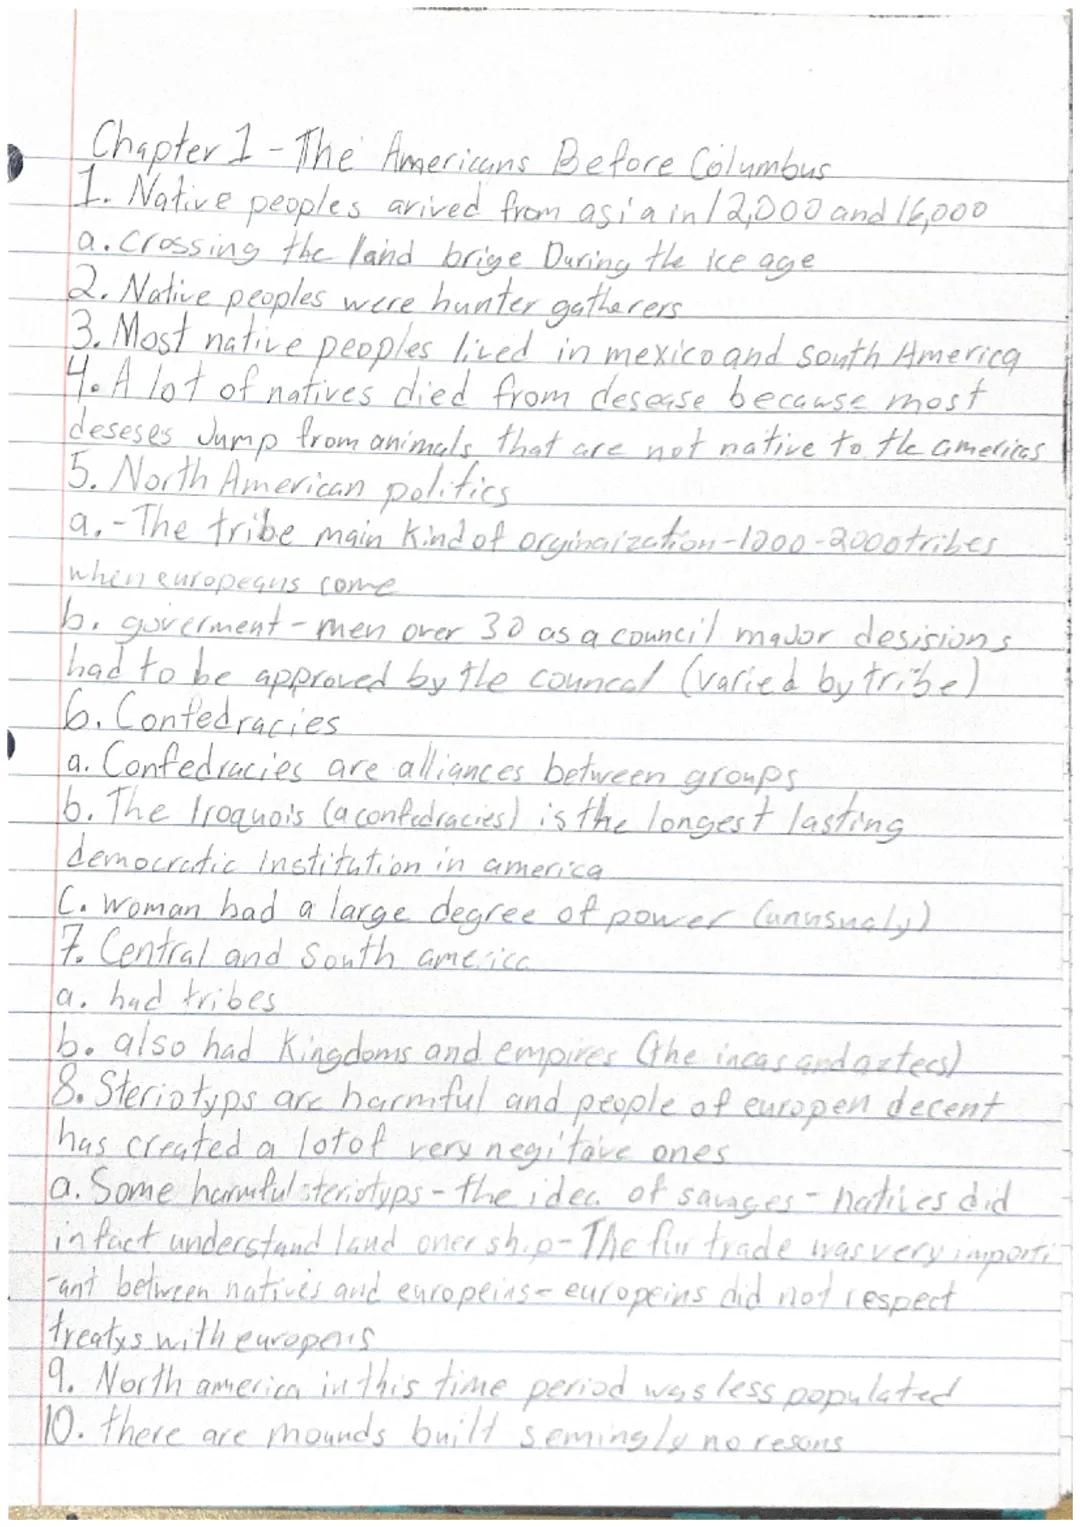 Chapter 1 - The Americans Before Columbus
1. Native peoples arived from asia in 12,000 and 16,000
a. crossing the land brige During the ice age
2. Native peoples were hunter gatherers
3. Most native peoples lived in mexico and south America
4. A lot of natives died from desease because most
deseses Jump from animals that are not native to the americas
5. North American politics
a. - The tribe main kind of orginaization - 1200 - 2000 tribes
when europeans come
b. goverment - men over 30 as a council major desisions
had to be approved by the councel (varied by tribe)
6. Confedracies
a. Confedracies are alliances between groups
b. The Iroquois (a confedracies) is the longest lasting
democratic institution in america
C. woman had a large degree of power (unusualy)
7. Central and South america
a. had tribes
b. also had Kingdoms and empires (the incas and aztecs)
8. Steriotyps are harmful and people of europen decent
has created a lot of very negitave ones
a. Some harmful steriotyps - the idea of savages - natives did
in fact understand land onership - The fur trade was very importi
-ant between natives and europeins - europeins did not respect
treatys with europens
9. North america in this time period was less populated
10. there are mounds built semingly no resons